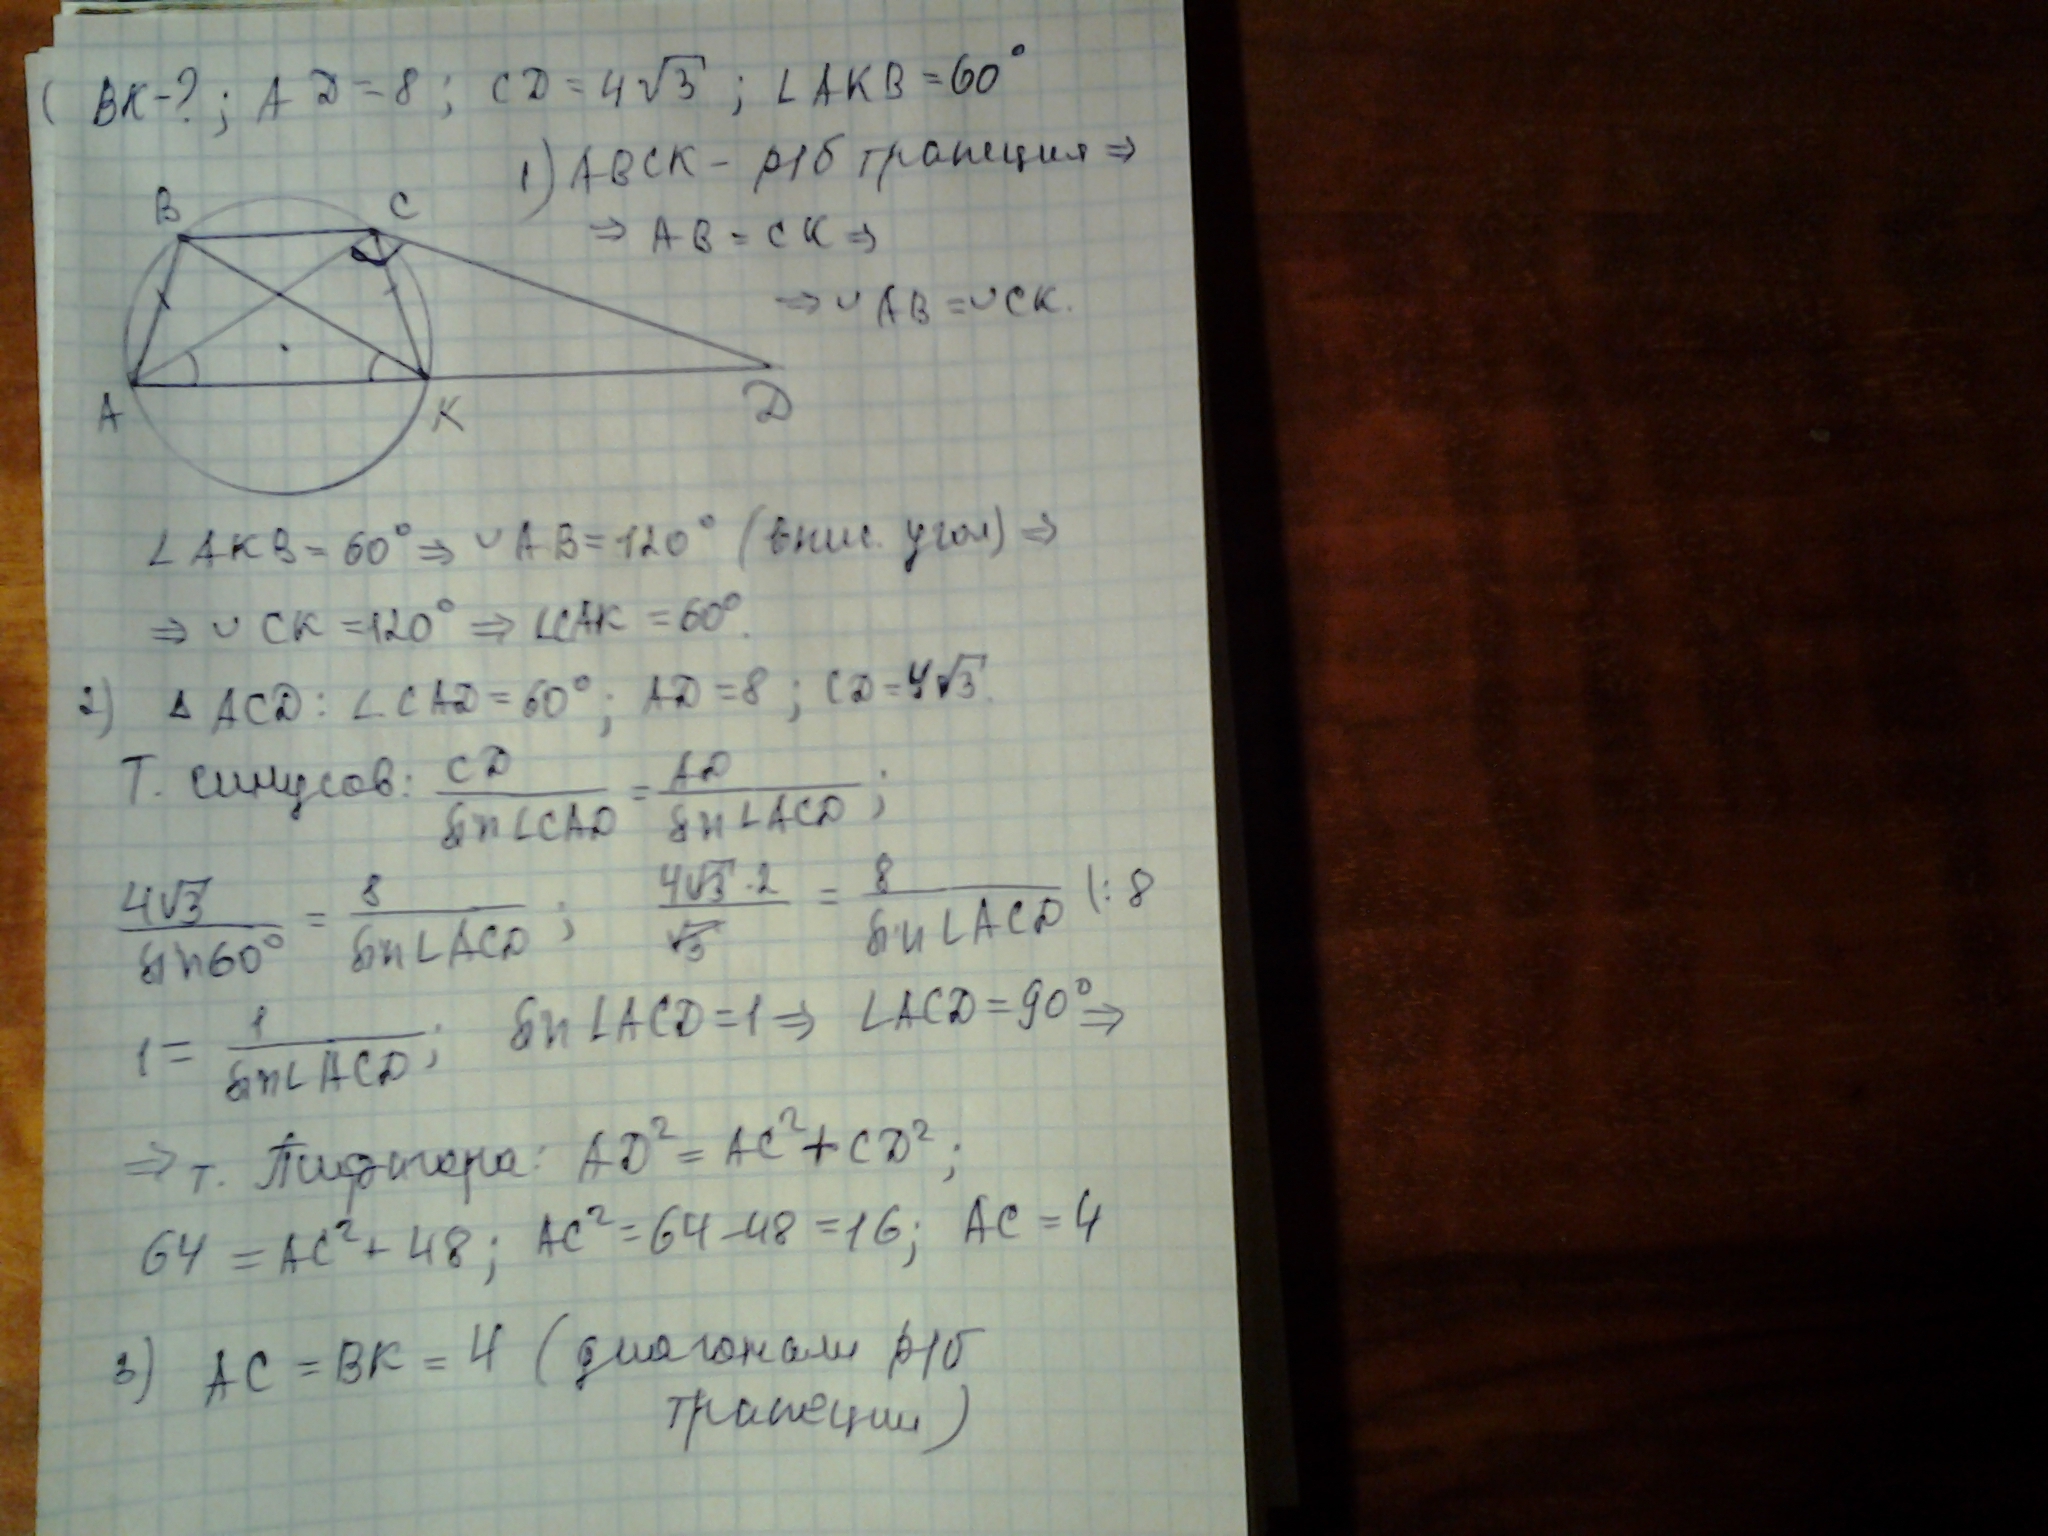 ( BK-?; AD=8; CD=4√3; ∠AKB=60°
1) ABCK - р/б трапеция ⇒
⇒ AB = CK ⇒
⇒ ∪AB = ∪CK.
B
C
A
K
D
∠AKB = 60° ⇒ ∪AB = 120° (впис. угол) ⇒
⇒ ∪CK = 120° ⇒ ∠CAK = 60°.
2) ∆ ACD: ∠CAD = 60°; AD = 8; CD = 4√3.
Т. синусов: CD/sin∠CAD = AD/sin∠ACD;
4√3/sin60° = 8/sin∠ACD; 4√3·2/√3 = 8/sin∠ACD |:8
1 = 1/sin∠ACD; sin∠ACD = 1 ⇒ ∠ACD = 90° ⇒
⇒ т. Пифагора: AD² = AC² + CD²;
64 = AC² + 48; AC² = 64 - 48 = 16; AC = 4
3) AC = BK = 4 (диагонали р/б
трапеции)